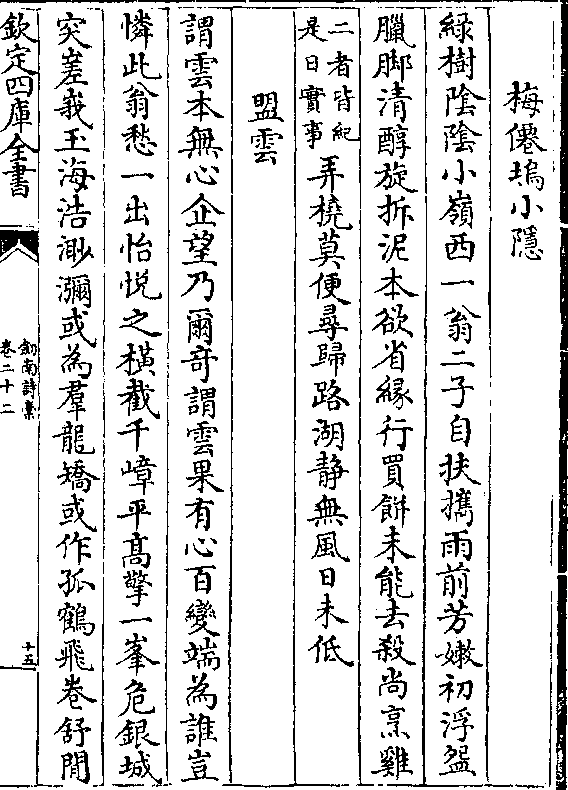 梅僊塢小隱
綠樹陰陰小嶺西一翁二子自扶攜雨前芳嫩初浮盌
臘脚清醇旋拆泥本欲省緣行買餅未能去殺尚烹雞
二者皆紀
是日實事
弄橈莫便尋歸路湖静無風日未低
盟雲
謂雲本無心企望乃爾竒謂雲果有心百變端為誰豈
憐此翁愁一出怡悦之横截千嶂平髙擎一峯危銀城
突嵳峩玉海浩渺瀰或為羣龍矯或作孤鶴飛卷舒閒
欽定四庫全書
劔南詩槀
卷二十二
十五